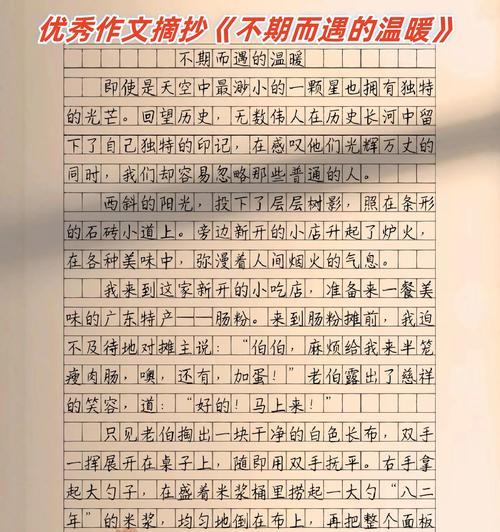 优秀作文摘抄《不期而遇的温暖》
不期而遇的温暖
即使是天空中最渺小的一颗星也拥有独特
的光芒。回望历史，无数伟人在历史长河中留
下了自己独特的印记，在感叹他们光辉万丈的
同时，我们却容易忽略那些普通的人。
西斜的阳光，投下了层层树影，照在条形
的石砖小道上。旁边新开的小店升起了炉火，
在各种美味中，弥漫着人间烟火的气息。
我来到这家新开的小吃店，准备来一餐美
味的广东特产——肠粉。来到肠粉摊前，我迫
不及待地对摊主说：“伯伯，麻烦给我来半笼
瘦肉肠，噢，还有，加蛋！”老伯露出了慈祥
的笑容，道：“好的！马上来！”
只见老伯掏出一块干净的白色长布，双手
一挥展开在桌子上，随即用双手抚平。右手拿
起大勺子，在盛着米浆桶里捞起一大勺“八二
年”的米浆，均匀地倒在布上，再把整个面板